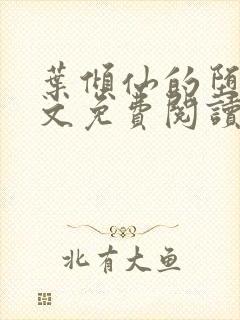 葉傾仙的墮
文免費閱讀
北有大鱼